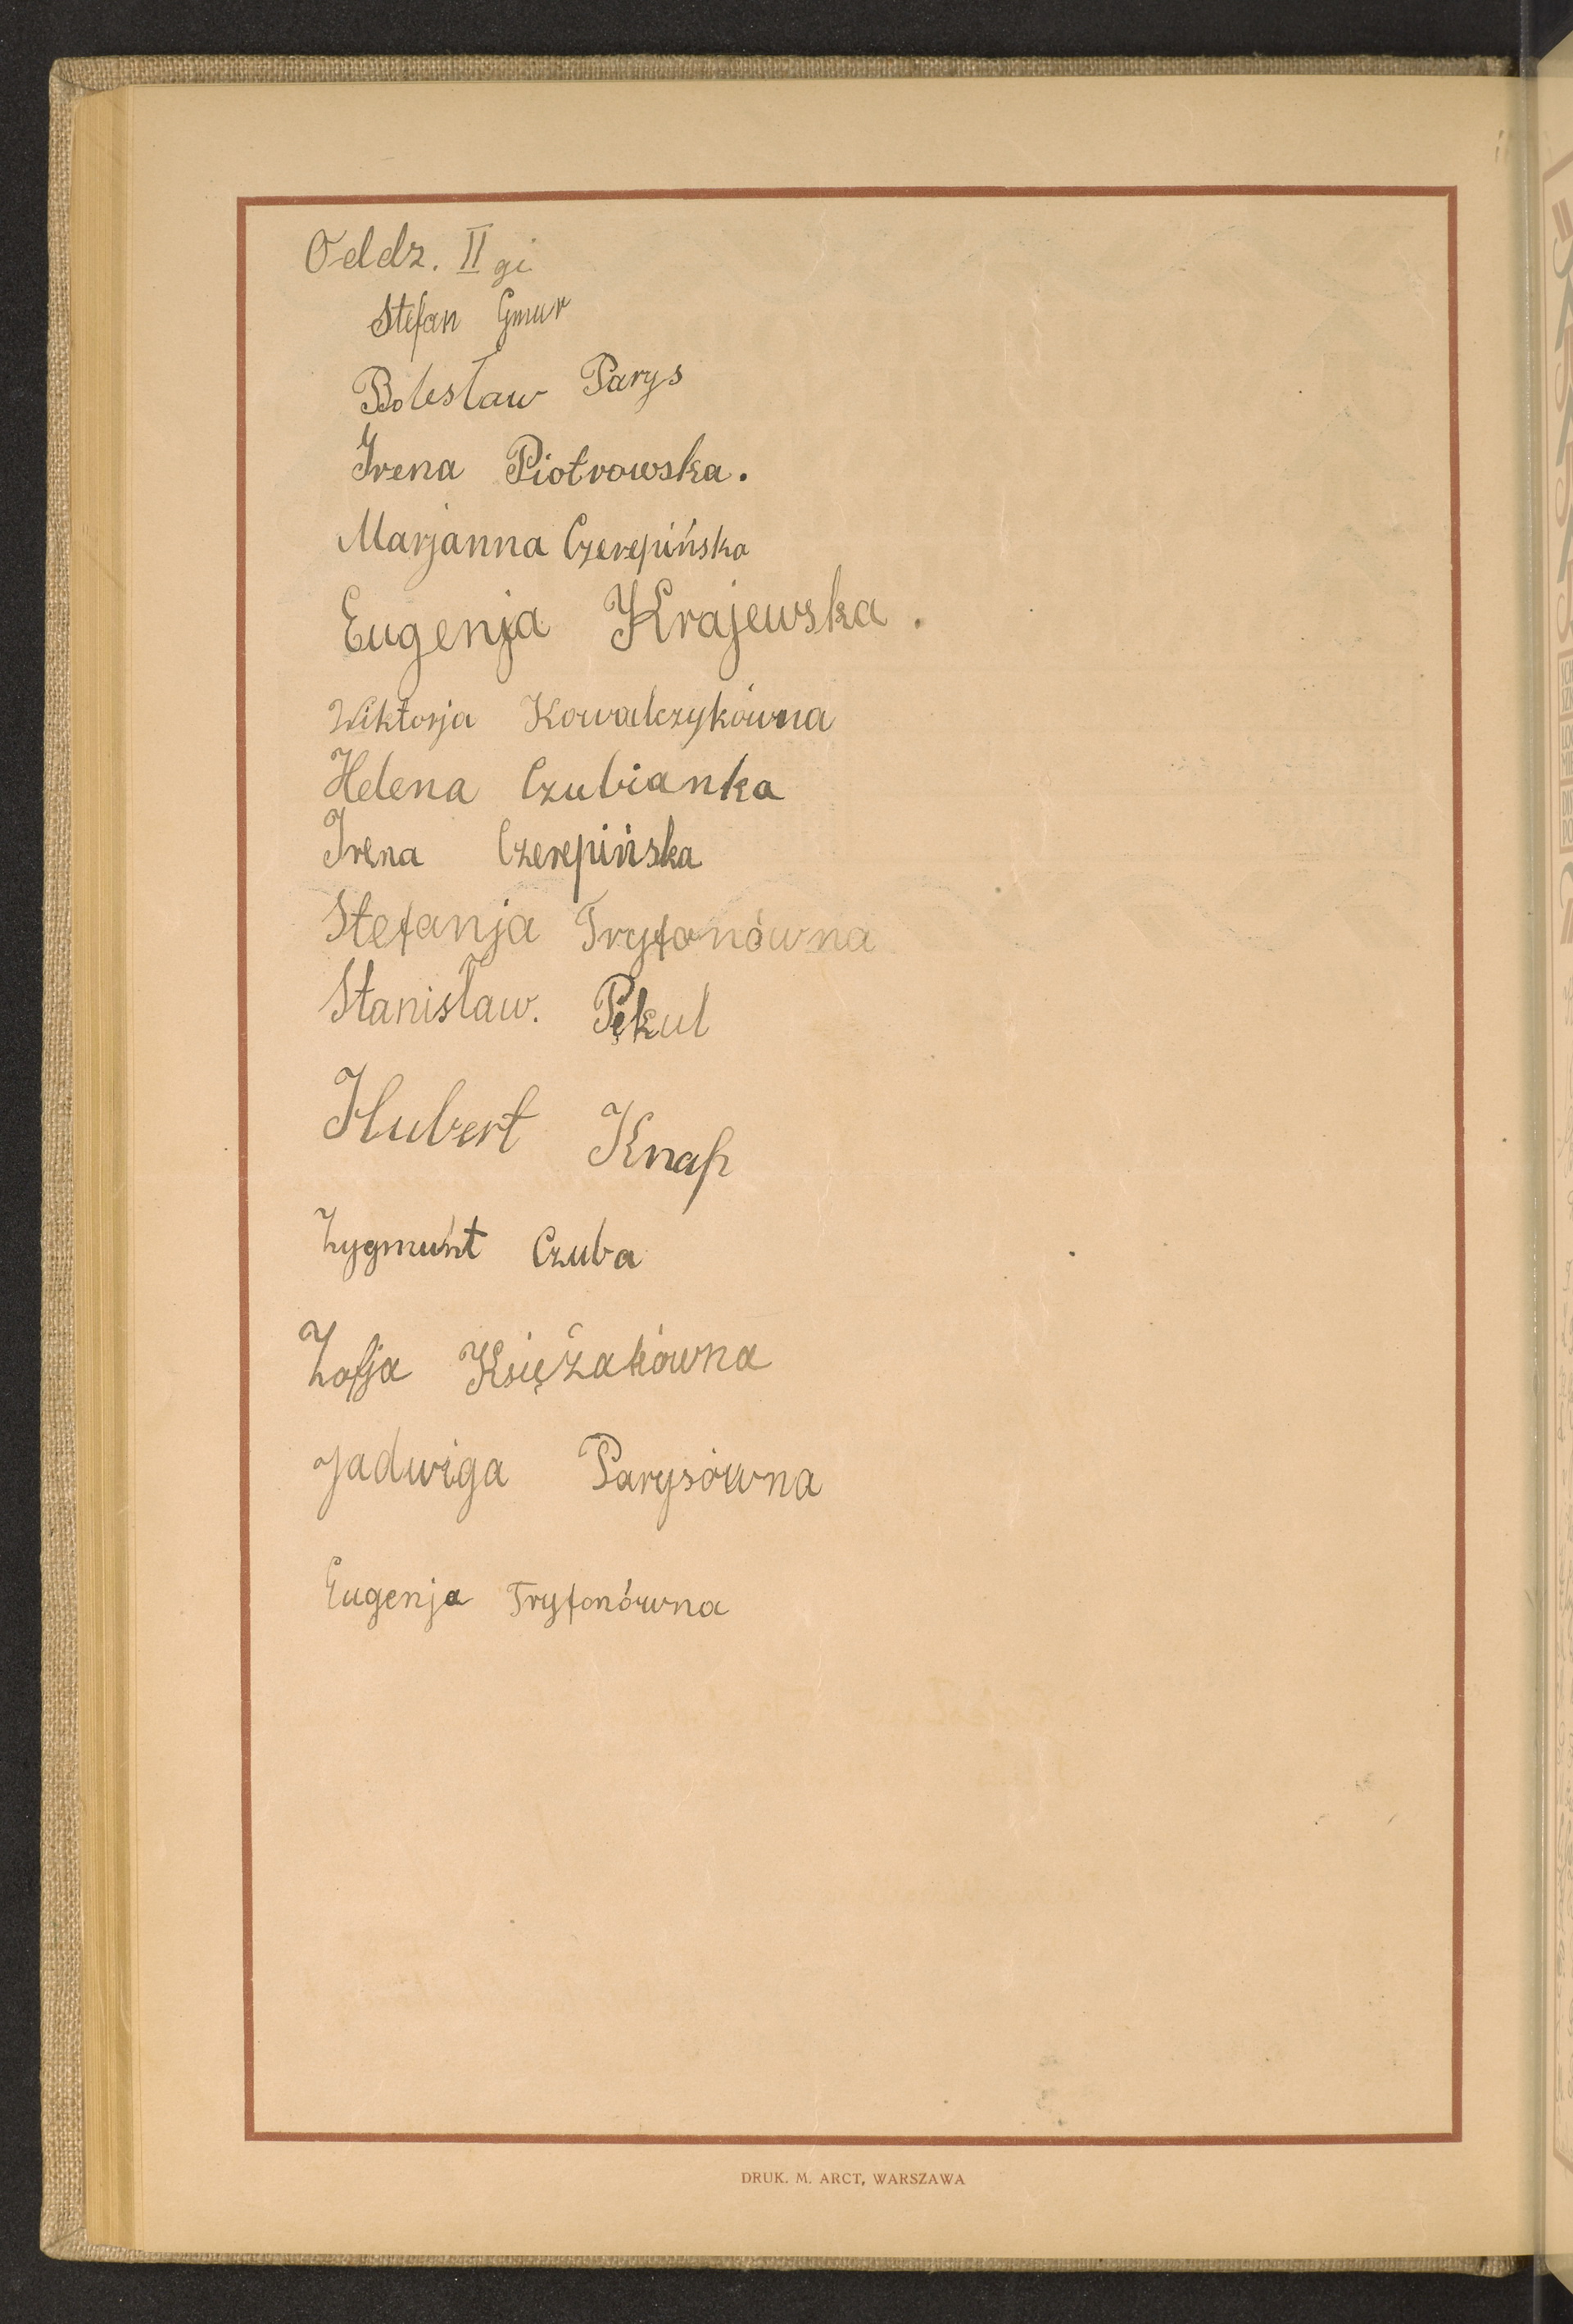 Oddz. II gi
Stefan Gmur
Bolesław Parys
Irena Piotrowska.
Marjanna Czerepińska
Eugenja Krajewska.
Wiktorja Kowalczykówna
Helena Czubianka
Irena Czerepińska
Stefanja Tryfonówna
Stanisław. Pękul
Hubert Knap
Zygmunt Czuba
Zofja Księżakówna
Jadwiga Parysówna
Eugenja Tryfonówna
DRUK. M. ARCT, WARSZAWA